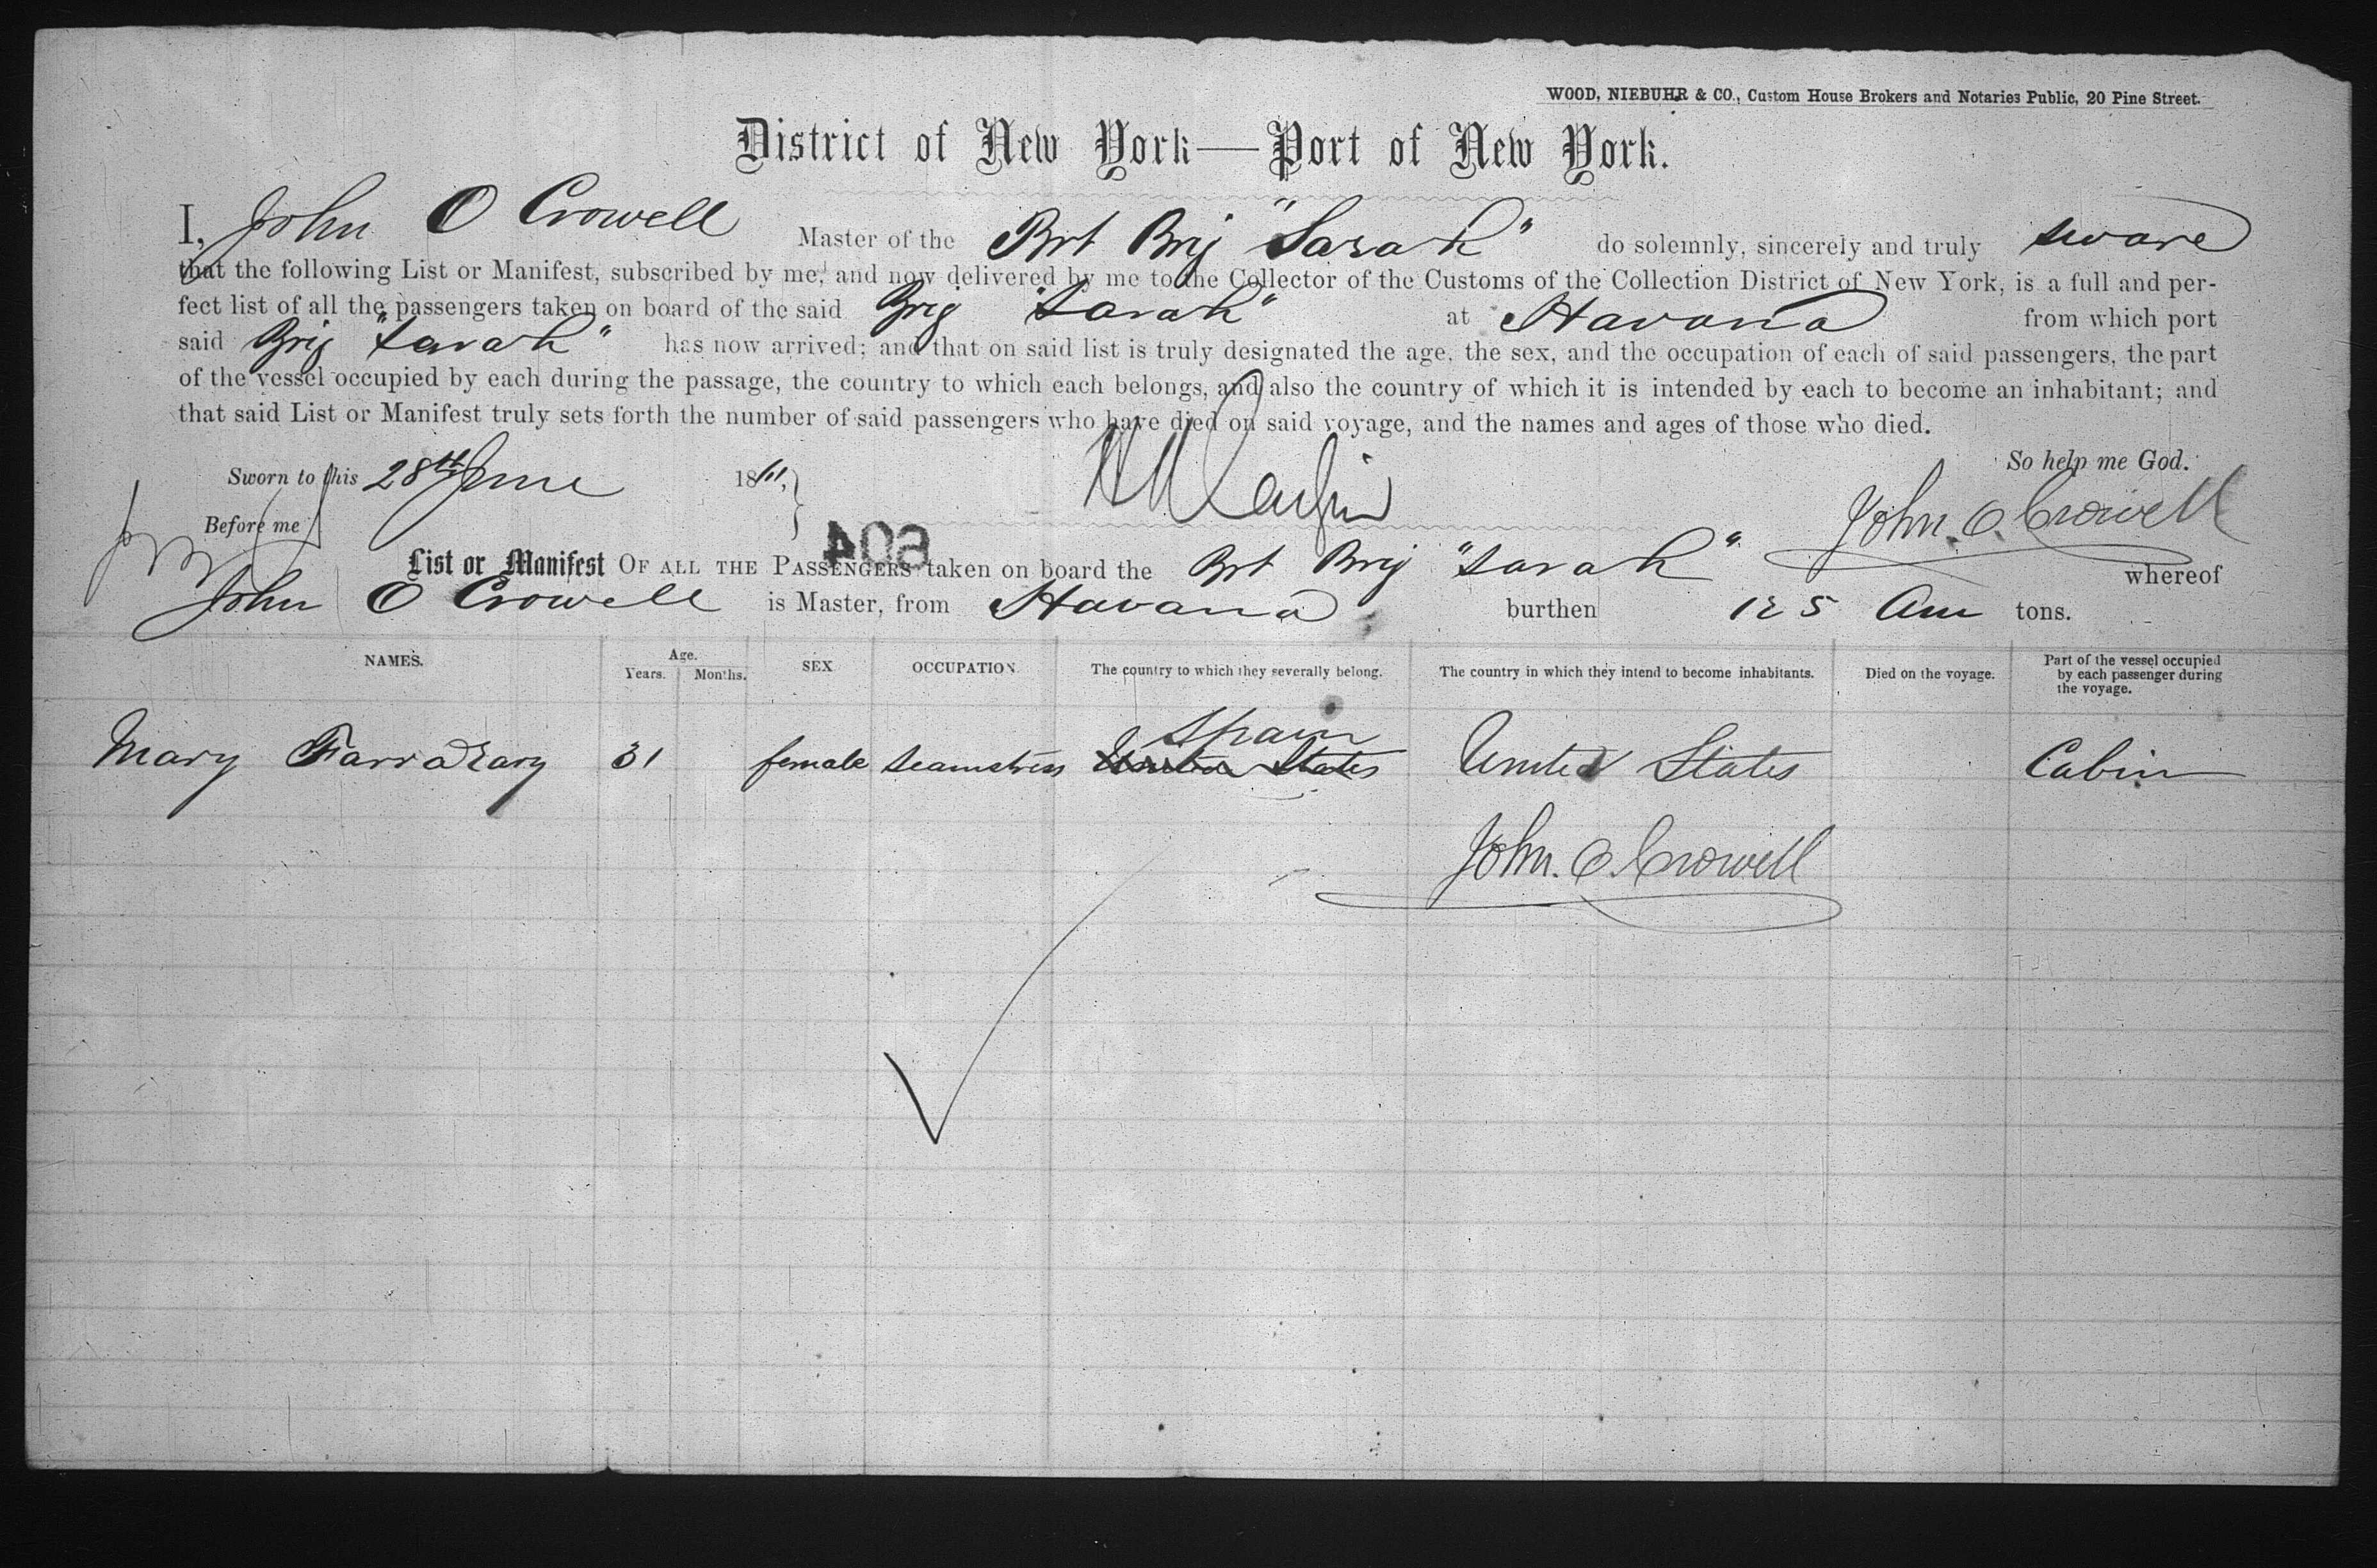 WOOD, NIEBUHR & CO., Custom House Brokers and Notaries Public, 20 Pine Street.
District of New York—Port of New York.
I, John O Crowell Master of the Brt Brig "Sarah" do solemnly, sincerely and truly sware
that the following List or Manifest, subscribed by me, and now delivered by me to the Collector of the Customs of the Collection District of New York, is a full and per-
fect list of all the passengers taken on board of the said Brig "Sarah" at Havana from which port
said Brig "Sarah" has now arrived; and that on said list is truly designated the age, the sex, and the occupation of each of said passengers, the part
of the vessel occupied by each during the passage, the country to which each belongs, and also the country of which it is intended by each to become an inhabitant; and
that said List or Manifest truly sets forth the number of said passengers who have died on said voyage, and the names and ages of those who died.
So help me God.
Sworn to this 28th June 1861,
Before me
John. O. Crowell
List or Manifest OF ALL THE PASSENGERS taken on board the Brt Brig "Sarah" whereof
John O Crowell is Master, from Havana burthen 125 Am tons.
NAMES. Age. Years. Months. SEX OCCUPATION. The country to which they severally belong. The country in which they intend to become inhabitants. Died on the voyage. Part of the vessel occupied by each passenger during the voyage.
Spain
Mary 31 female seamstress United States United States Cabin
John. O. Crowell